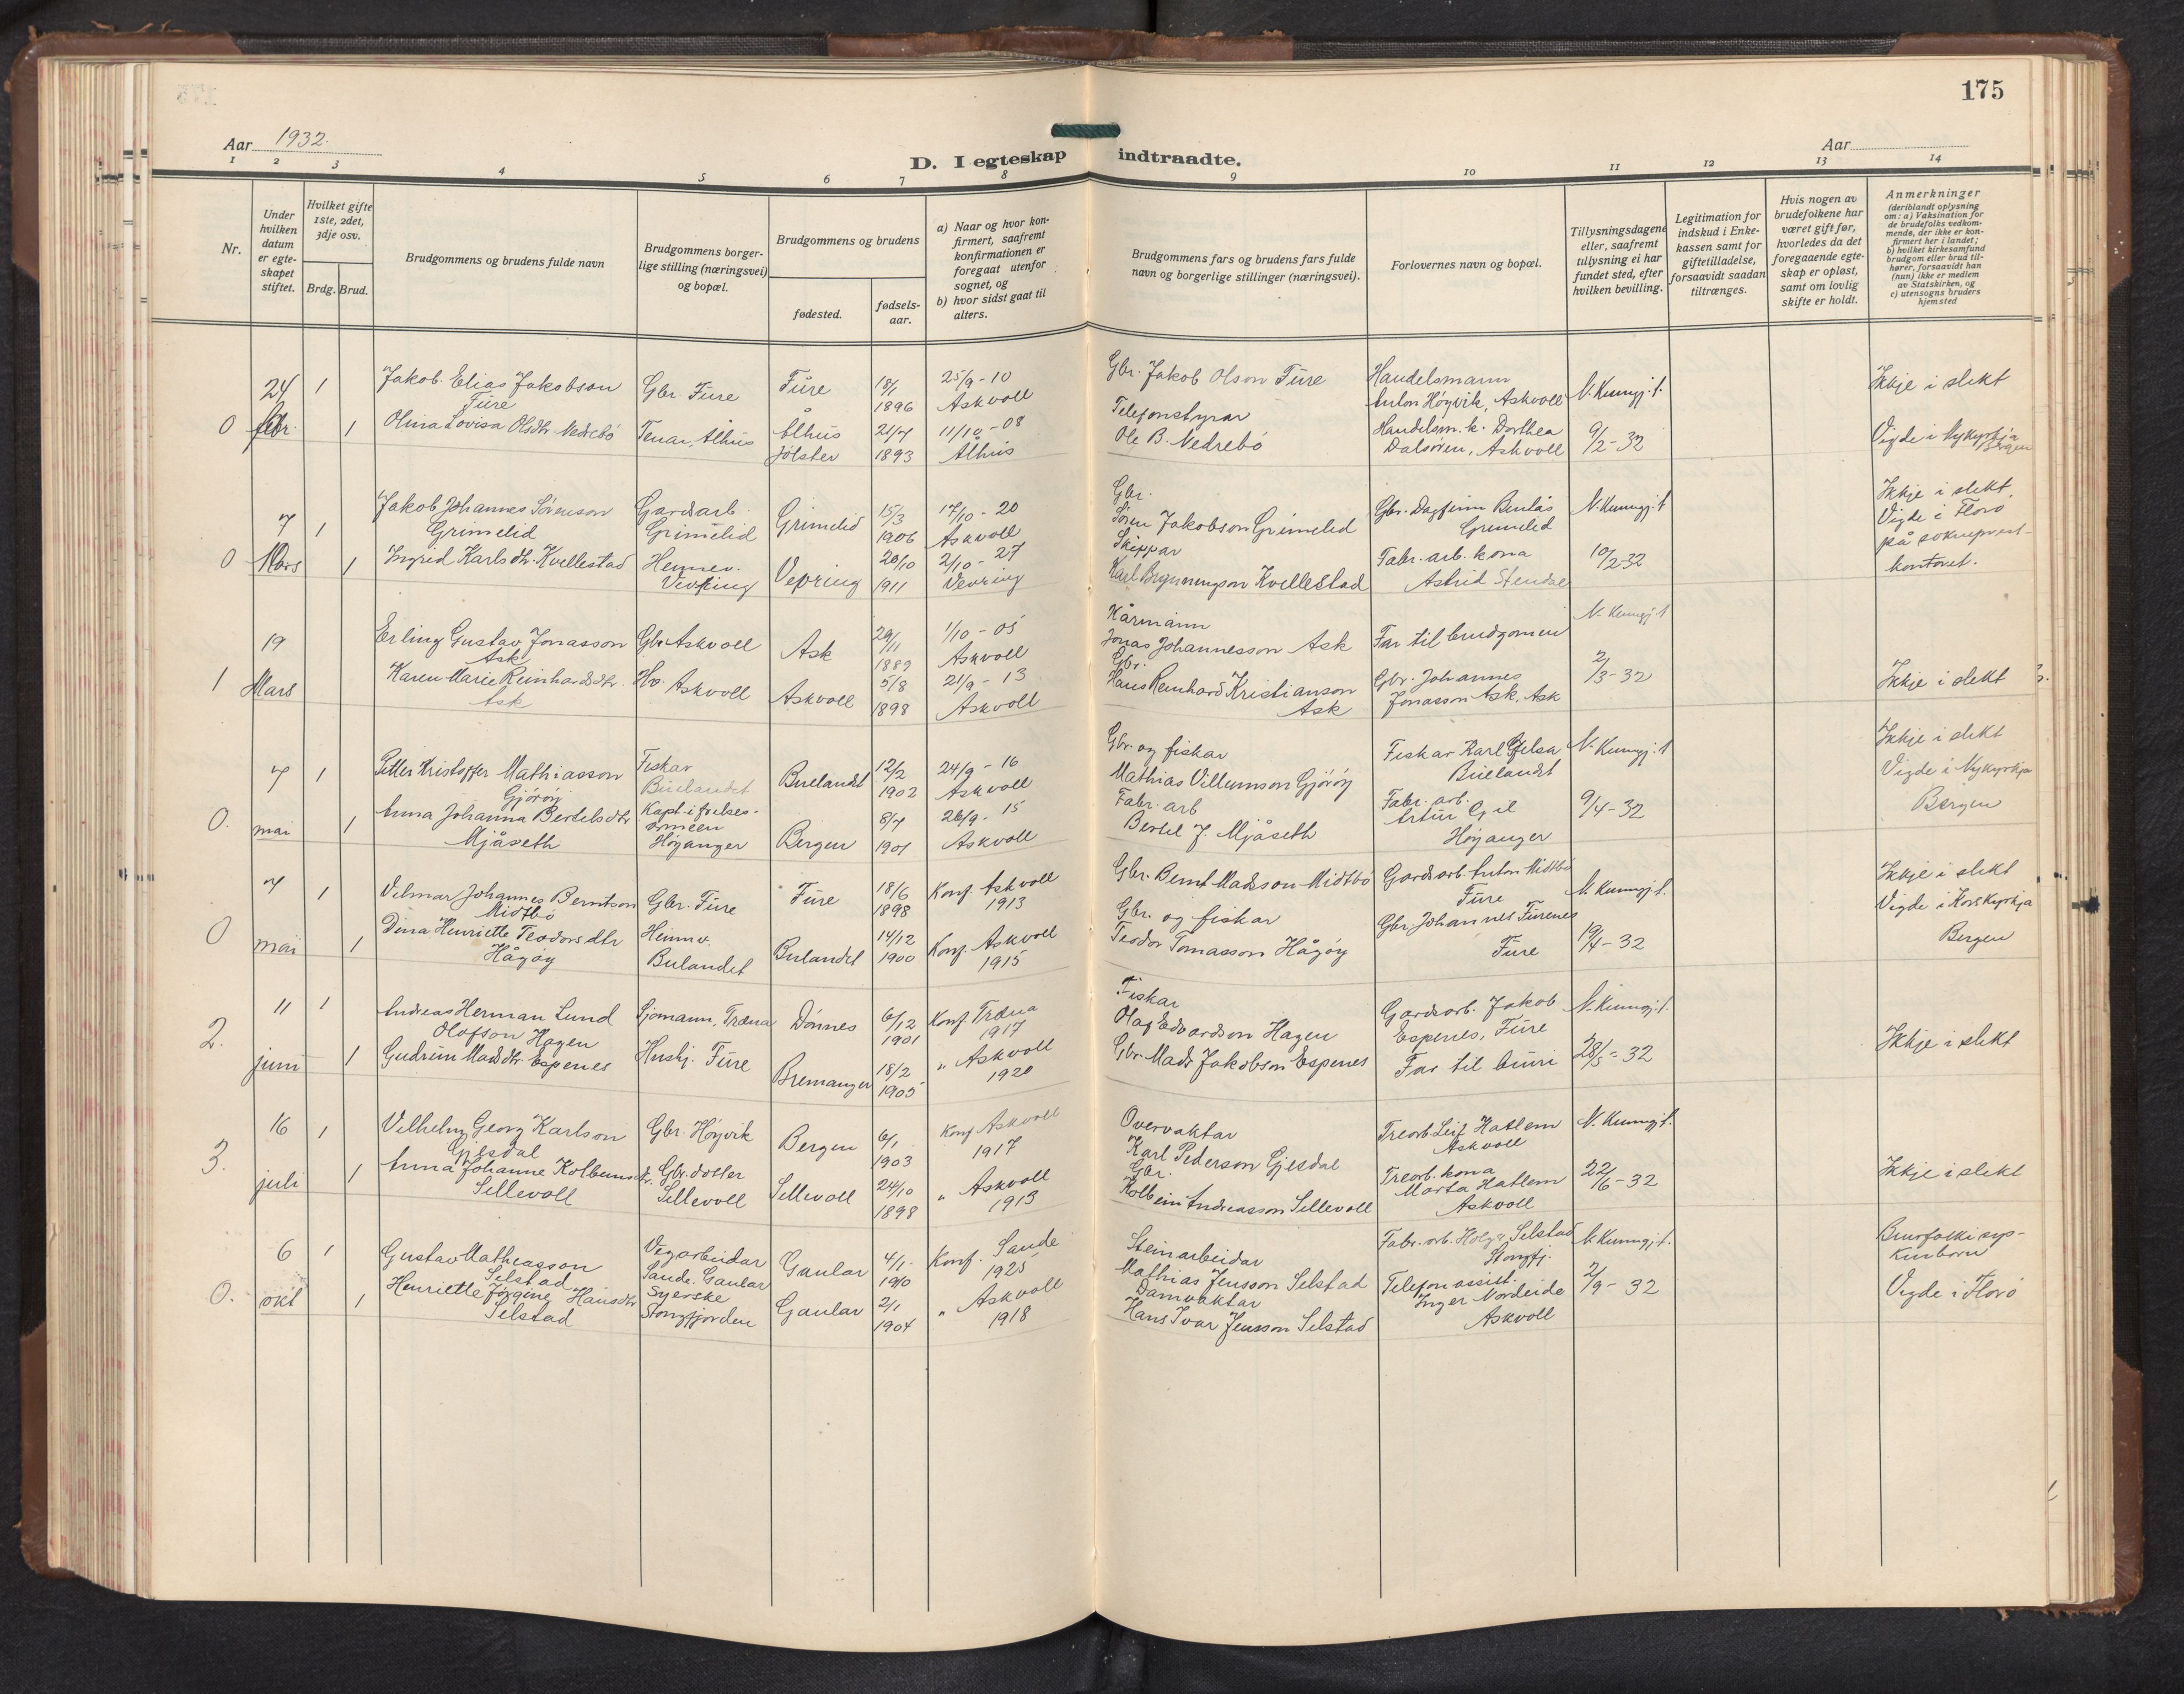 175
Aar 1932.
D. I egteskap indtraadte.
Aar
1 2 3 4 5 6 7 8 9 10 11 12 13 14
Nr.
Under hvilken datum er egte-skapet stiftet.
Hvilket gifte 1ste, 2det, 3dje osv.
Brdg. Brud.
Brudgommens og brudens fulde navn
Brudgommens borger-lige stilling (næringsvei) og bopæl.
Brudgommens og brudens
fødested.
fødsels-aar.
a) Naar og hvor kon-firmert, saafremt konfirmationen er foregaat utenfor sognet, og
b) hvor sidst gaat til alters.
Brudgommens fars og brudens fars fulde navn og borgerlige stillinger (næringsvei).
Forlovernes navn og bopæl.
Tillysningsdagene eller, saafremt tillysning ei har fundet sted, efter hvilken bevilling.
Legitimation for indskud i Enke-kassen samt for giftetilladelse, forsaavidt saadan tiltrænges.
Hvis nogen av brudefolkene har været gift før, hvorledes da det foregaaende egte-skap er opløst, samt om lovlig skifte er holdt.
Anmerkninger
(deriblandt oplysning om: a) Vaksination for de brudefolks vedkom-mende, der ikke er kon-firmert her i landet; b) hvilket kirkesamfund brudgom eller brud til-hører, forsaavidt han (hun) ikke er medlem av Statskirken, og c) utensogns bruders hjemsted
24 1 Jakob Elias Jakobson Füre Gbr Füre Füre 18/1 1896 25/9-10 Askvoll Gbr. Jakob Olson Füre Handelsmann Anton Høyvik, Askvoll N. Kunngj. t. Ikkje i slekt
0 febr. 1 Olina Lovisa Olsdtr Nedrebö Tenar, Ålhus Ålhus Jölster 21/7 1893 11/10-08 Ålhus Telefonstyrar Ole B. Nedrebö Handelsm. k. Dorthea Dalsøren, Askvoll 9/2-32 Vigde i Nykyrkja Bergen
7 1 Jakob Johannes Sørenson Grimelid Gardsarb. Grimelid Grimelid 15/3 1906 17/10-20 Askvoll Gbr. Søren Jakobson Grimelid Gbr. Dagfinn Grimelid N. Kunngj. t Ikkje i slekt, Vigde i Florö
0 Mars 1 Ingrid Karlsdtr. Kvellestad Heimev. Vevring Vevring 20/10 1911 2/10-27 Vevring Skippar Karl Kvellestad Fabr. arb. kona Astrid Stendal 10/2-32 på sokneprest-kontoret.
19 Erling Gustav Jonasson Ask Gbr Askvoll Ask 29/11 1889 1/10-05 Askvoll Kårmann Jonas Johannesson Ask Far til brudgomen N. Kunngj. t
1 Mars Karen Marie Reinhardsdtr. Ask Hv. Askvoll Askvoll 5/8 1898 21/9-13 Askvoll Gbr. Hans Reinhard Kristianson Ask Gbr. Johannes Jonasson Ask, Ask 2/3-32 Ikkje i slekt
7 1 Petter Kristoffer Mathiasson Gjöröy Fiskar Buelandet Buelandet 12/2 1902 24/9-16 Askvoll Gbr. og fiskar Mathias Villumson Gjöröy Fiskar Karl Gjelsa Buelandet N. Kunngj. t Ikkje i slekt
0. mai 1 Anna Johanna Bertelsdtr Mjåseth Kapt. i frelses-armeen Høyanger Bergen 8/7 1901 26/9-15 Askvoll Fabr. arb Bertel J. Mjåseth Fabr. arb. Artur Gil Høyanger 9/4-32 Vigde i Nykyrkja Bergen
7 1 Vilmar Johannes Berntson Midtbö Gbr. Füre Füre 18/6 1898 Konf Askvoll 1913 Gbr. Bernt Madsson Midtbö Gardsarb Anton Midtbö Füre N. Kunngj. t. Ikkje i slekt
0 mai 1 Dina Henriette Teodorsdtr Hågöy Heimv. Bulandet Bulandet 14/12 1900 Konf. Askvoll 1915 Gbr. og fiskar Teodor Tomasson Hågöy Gbr. Johannes Fürenes Füre 19/4-32 Vigde i Korskyrkja Bergen
11 1 Andreas Herman Lund Olafson Hagen Sjömann, Træna Dønnes 6/12 1901 Konf Træna 1917 Fiskar Olaf Edvardson Hagen Gardsarb. Jakob Espenes, Füre N. Kunngj. t.
2. juni 1 Gudrun Madsdtr. Espenes Hushj. Füre Bremanger 18/2 1905 " Askvoll 1920 Gbr. Mads Jakobson Espenes Far til bruri 28/5-32 Ikkje i slekt
16 1 Vilhelm Georg Karlson Gjesdal Gbr. Høyvik Bergen 6/1 1903 Konf Askvoll 1917 Overvaktar Karl Pederson Gjesdal Trearb. Leif Hatlem Askvoll N. Kunngj. t.
3. juli 1 Anna Johanne Kolbeinsdtr. Sellevoll Gbr. dotter Sellevoll Sellevoll 24/10 1898 " Askvoll 1913 Gbr. Kolbein Andreasson Sellevoll Trearb. kona Marta Hatlem Askvoll 22/6-32 Ikkje i slekt
6 1 Gustav Matheasson Selstad Vegarbeidar Sande. Gaular Gaular 4/1 1910 Konf. Sande 1925 Steinarbeidar Mathias Jensson Selstad Fabr. arb. Holger Selstad Stongfj. N. Kunngj. t. Brurfolki sys-kinborn
0. okt 1 Henriette Jørgine Hansdtr Selstad Syerske Stongfjorden Gaular 2/1 1904 " Askvoll 1918 Damvaktar Hans Ivar Jensson Selstad Telefonassist. Inger Nordeide Askvoll 2/9-32 Vigde i Florö